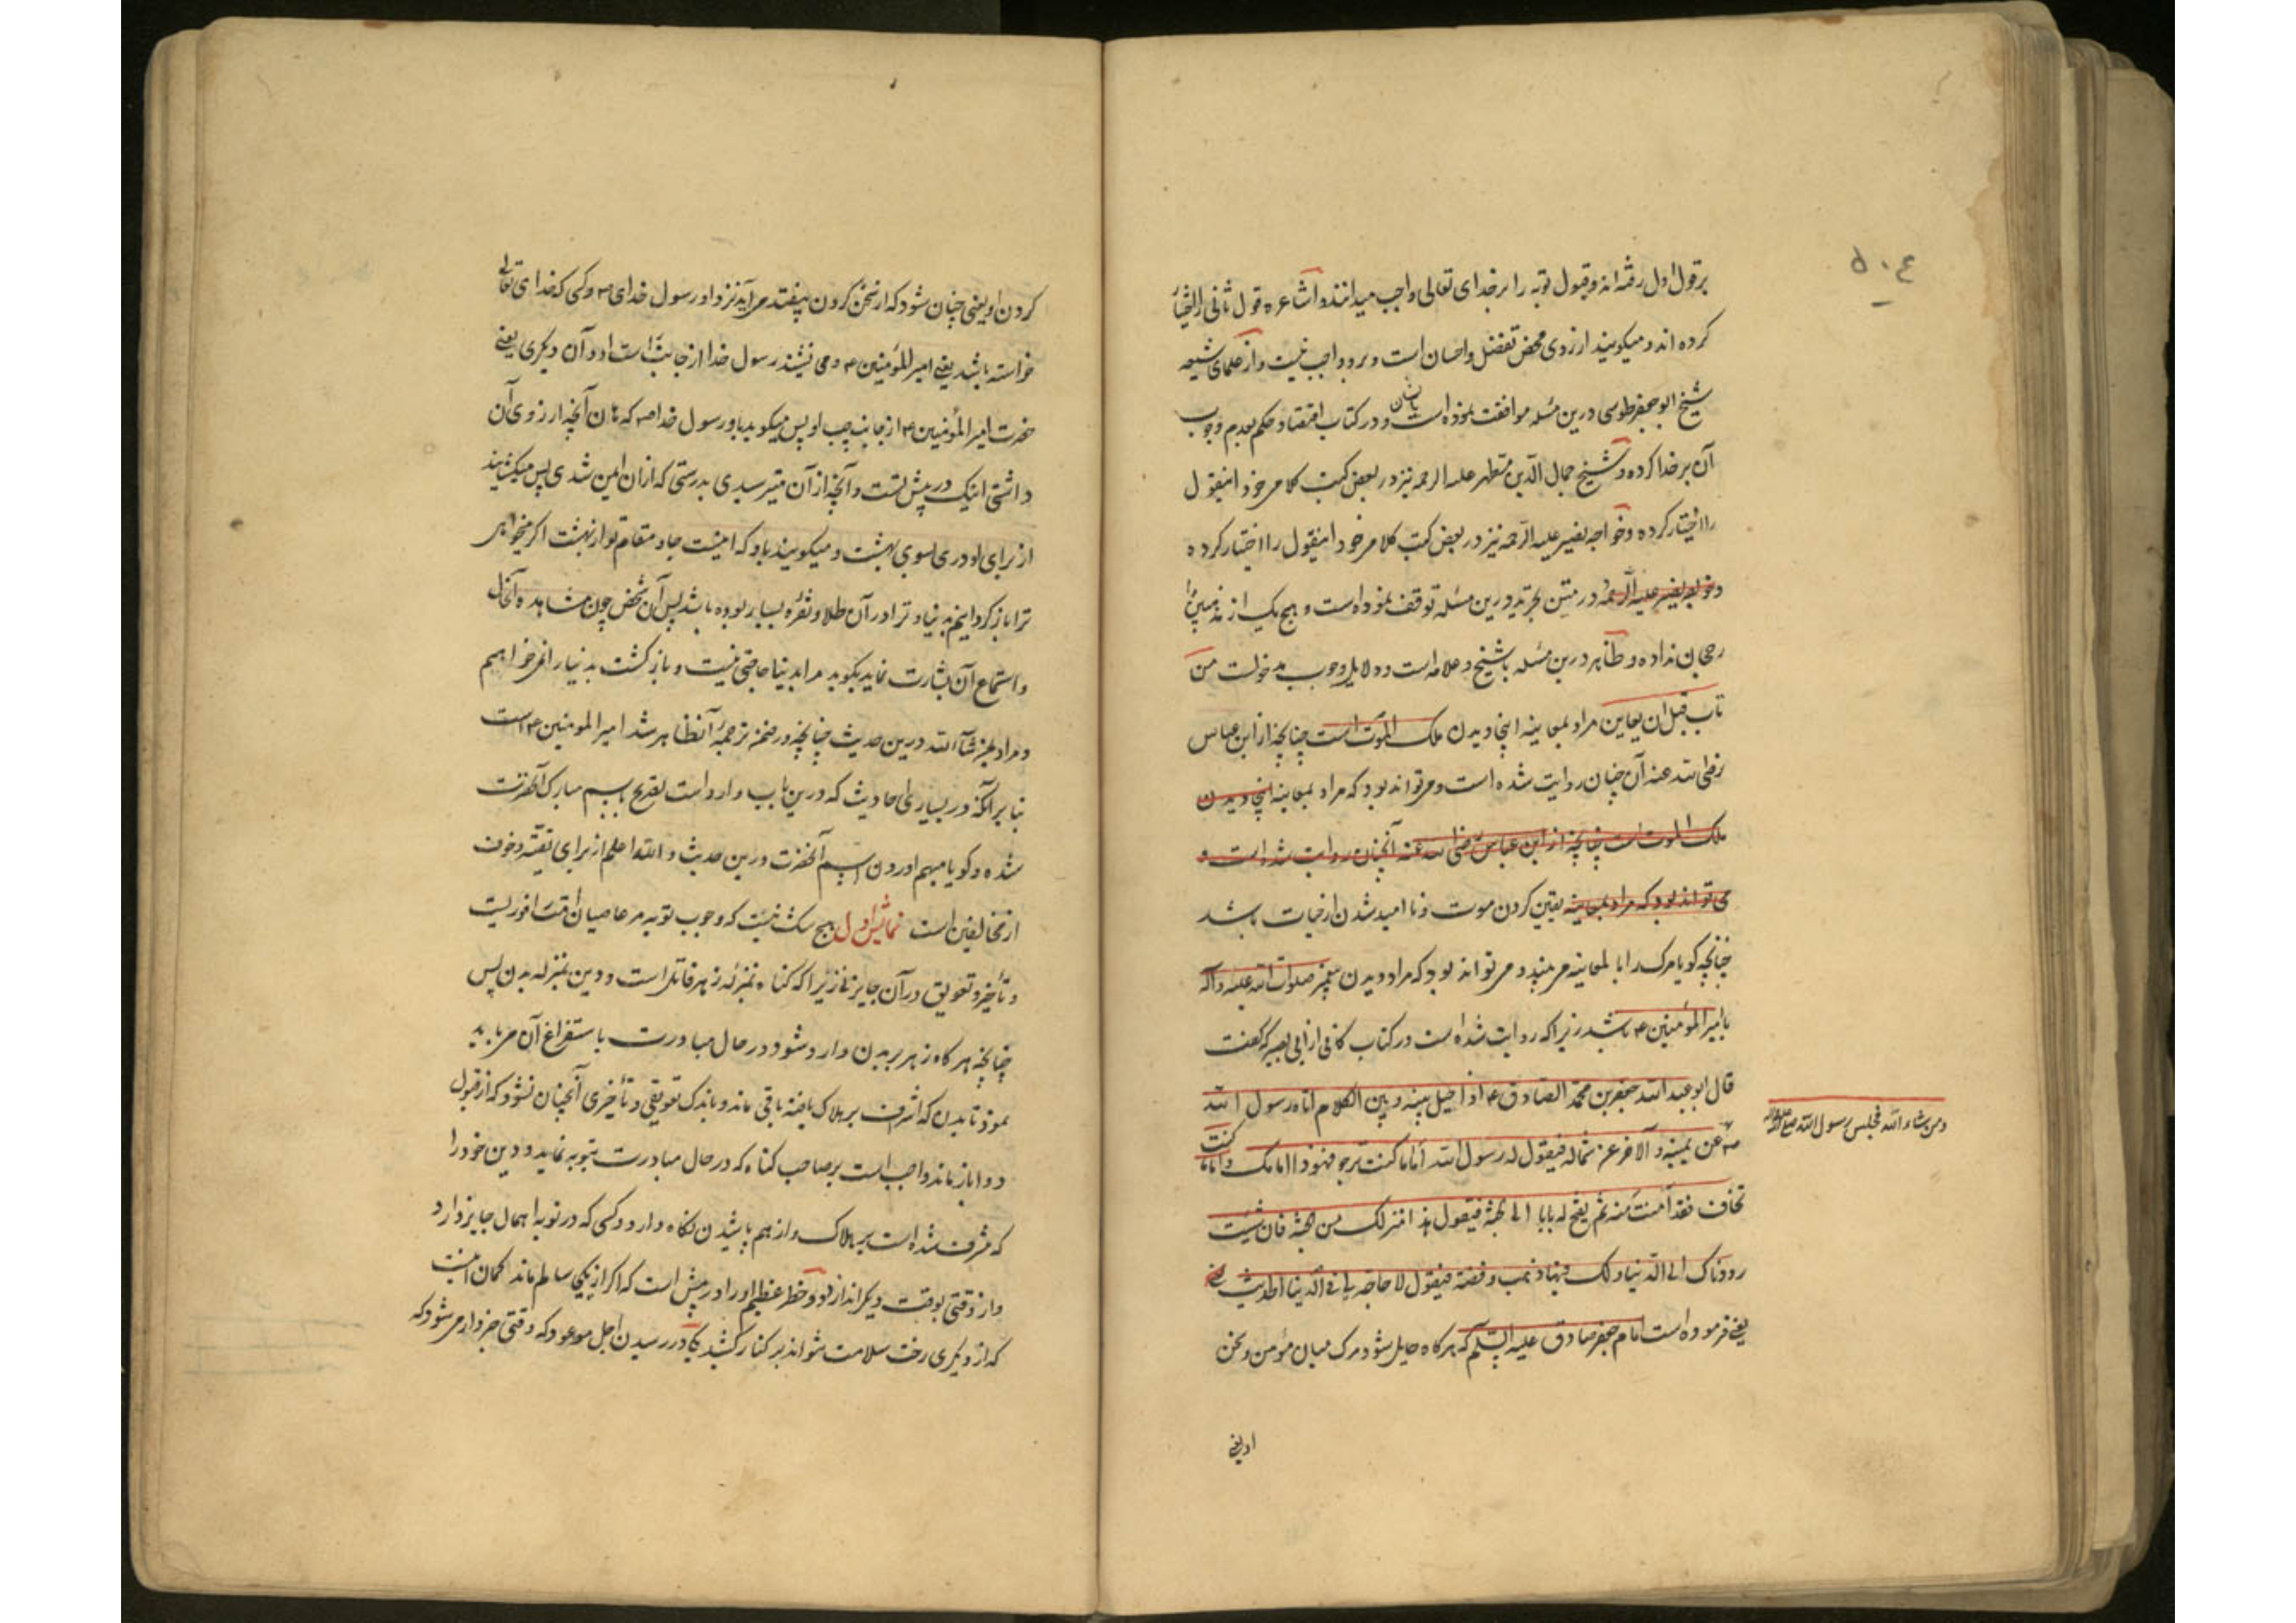 برقول اول رفته‌اند و قبول توبه را بر خدای تعالی واجب میدانند و اشاعره قول ثانی را اختیار
کرده اند و میکویند از روی محض تفضل و احسان است و برو واجب نیست و از علمای شیعه
شیخ ابو جعفر طوسی درین مسله موافقت نموده است باشان و در کتاب اقتصاد حکم بعدم وجوب
آن بر خدا کرده و شیخ جمال الدین مطهر علیه الرحمه نیز در بعض کتب کلامی خود اینقول
را اختیار کرده و خواجه نصیر علیه الرحمه نیز در بعض کتب کلامی خود اینقول را اختیار کرده
و خواجه نصیر علیه الرحمه در متن تجرید درین مسله توقف نموده است و هیچ یک از مذهبین را
رجحان نداده و ظاهر درین مسله با شیخ و علامه است و دلایل وجوب مدخولست من
تاب قبل ان یعاین مراد بمعاینه اینجا دیدن ملک الموت است چنانچه از ابن عباس
رضی الله عنه آن چنان روایت شده است و می تواند بود که مراد بمعاینه اینجا دیدن
ملک الموت است چنانچه از ابن عباس رضی الله عنه آنچنان روایت شده است و
می تواند بود که مراد بمعاینه یقین کردن موت و نا امید شدن از حیات باشد
چنانچه کویا مرک را بالمعاینه می بیند و می تواند بود که مراد دیدن پیغمبر صلوات الله علیه و آله
یا امیر المؤمنین ع باشد زیرا که روایت شده است در کتاب کافی از ابی بصیر که گفت
قال ابو عبد الله جعفر بن محمد الصادق ع اذا حیل بینه و بین الکلام اتاه رسول الله
ومن شاء الله فجلس رسول الله صلی الله علیه وآله
ص عن یمینه و الآخر عن شماله فیقول له رسول الله اما ما کنت ترجو فهوذا امامک و اما ما کنت
تخاف فقد آمنت منه ثم یفتح له بابا الی الجنة فیقول هذا منزلک من الجنة فان شئت
رددناک الی الدنیا و لک فیها ذهب و فضة فیقول لا حاجة لی فی الدنیا الحدیث
یعنی فرموده است امام جعفر صادق علیه السلام که هر کاه حایل شود مرک میان مؤمن و سخن
او یعنی
کردن او یعنی چنان شود که از سخن کردن بیفتد می آید نزد او رسول خدای ص و کسی که خدای تعالی
خواسته باشد یعنی امیر المؤمنین ع و می نشیند رسول خدا از جانب راست او و آن دیکری یعنی
حضرت امیر المؤمنین ع از جانب چپ او پس میکوید باو رسول خدا ص که هان آنچه آرزوی آن
داشتی اینک در پیش تست و آنچه از آن میترسیدی بدرستی که از آن ایمن شدی پس میکشایند
از برای او دری بسوی بهشت و میکویند باو که اینست جا و مقام تو از بهشت اکر میخواهی
ترا باز کردانیم بدنیا و ترا در آن طلا و نقره بسیار بوده باشد پس آن شخص چون مشاهده آنحال
و استماع آن بشارت نماید بکوید مرا بدنیا حاجتی نیست و باز کشت بدنیا را نمی خواهم
و مراد بمن شاء الله درین حدیث چنانچه در ضمن ترجمه آن ظاهر شد امیر المومنین ع است
بنابر آنکه در بسیاری احادیث که درین باب وارد است تصریح باسم مبارک آنحضرت
شده و کویا مبهم اوردن اسم آنحضرت درین حدیث و الله اعلم از برای تقیه و خوف
از مخالفین است نمایش اول هیچ شک نیست که وجوب توبه مر عاصیان را فوریست
و تأخیر و تعویق در آن جایز نی زیرا که کناه بمنزله زهر قاتل است و دین بمنزله بدن پس
چنانچه هر کاه زهر بر بدن وارد شود در حال مبادرت باستفراغ آن می باید
نمود تا بدن که مشرف بر هلاک یافته باقی ماند و باندک تعویقی و تأخیری آنچنان نشود که از قبول
دوا باز ماند واجب است بر صاحب کناه که در حال مبادرت بتوبه نماید و دین خود را
که مشرف شده است بر هلاک و از هم پاشیدن نکاه دارد و کسی که در توبه اهمال جایز دارد
و از وقتی بوقت دیکر اندازد دو خطر عظیم او را در پیش است که اکر از یکی سالم ماند کمان اینست
که از دیکری رخت سلامت نتواند بر کنار کشید یکی در رسیدن اجل موعود که وقتی خبردار می شود که